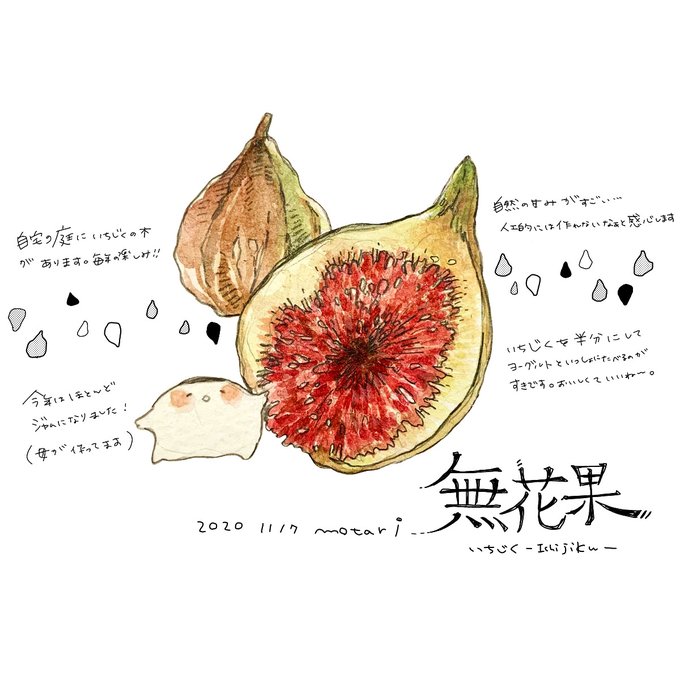 自宅の庭にいちじくの木
があります。毎年の楽しみ!!
今年はほとんど
ジャムになりました!
(母が作ってます)
自然の甘みがすごい…
人工的には作れないなぁと感心します
いちじくを半分にして
ヨーグルトといっしょにたべるのが
すきです。おいしくていいね〜。
無花果
2020 11/17 motari...
いちじく -Ichijiku-